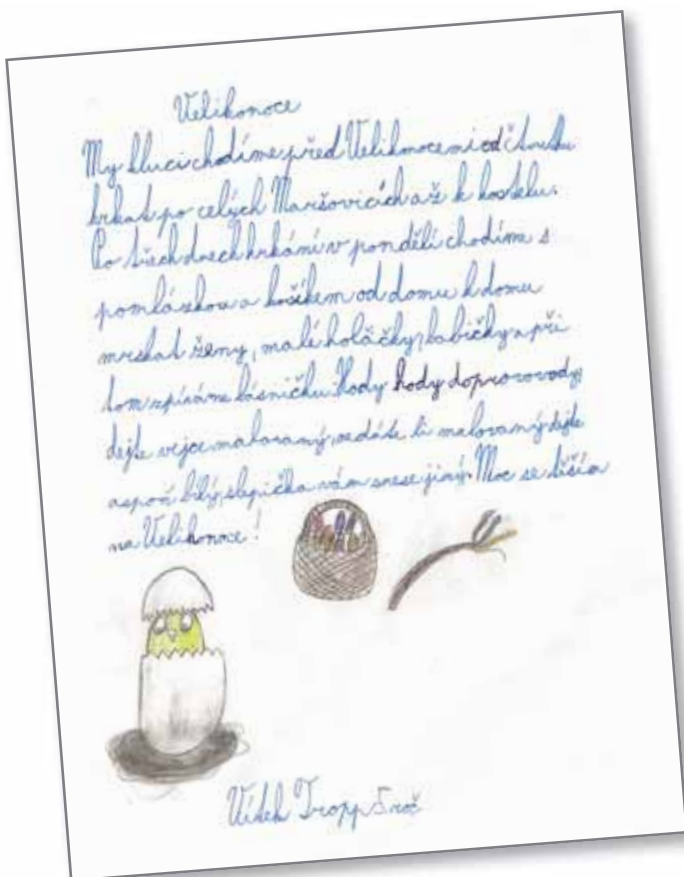 Velikonoce
My kluci chodíme před Velikonocemi od čtvrtku
hrkat po celých Maršovicích až k kostelu.
Po třech dnech hrkání v pondělí chodíme s
pomlázkou a košíkem od domu k domu
mrskat ženy, malé holčičky, babičky a při
tom zpíváme básničku: Hody hody doprovody,
dejte vejce malovaný, nedáte li malovaný dejte
aspoň bílý, slepička vám snese jiný. Moc se těším
na Velikonoce!
Vítek Tropp 5 roč